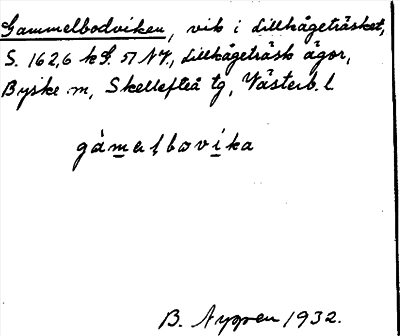 Gammelbodviken, vik i Lillhågeträsket,
S. 162,6 k S. 51 NV, Lillhågeträsk ägor,
Byske sn, Skellefteå tg, Västerb. l
gàmalboví̱ka
B. Nyppen 1932.